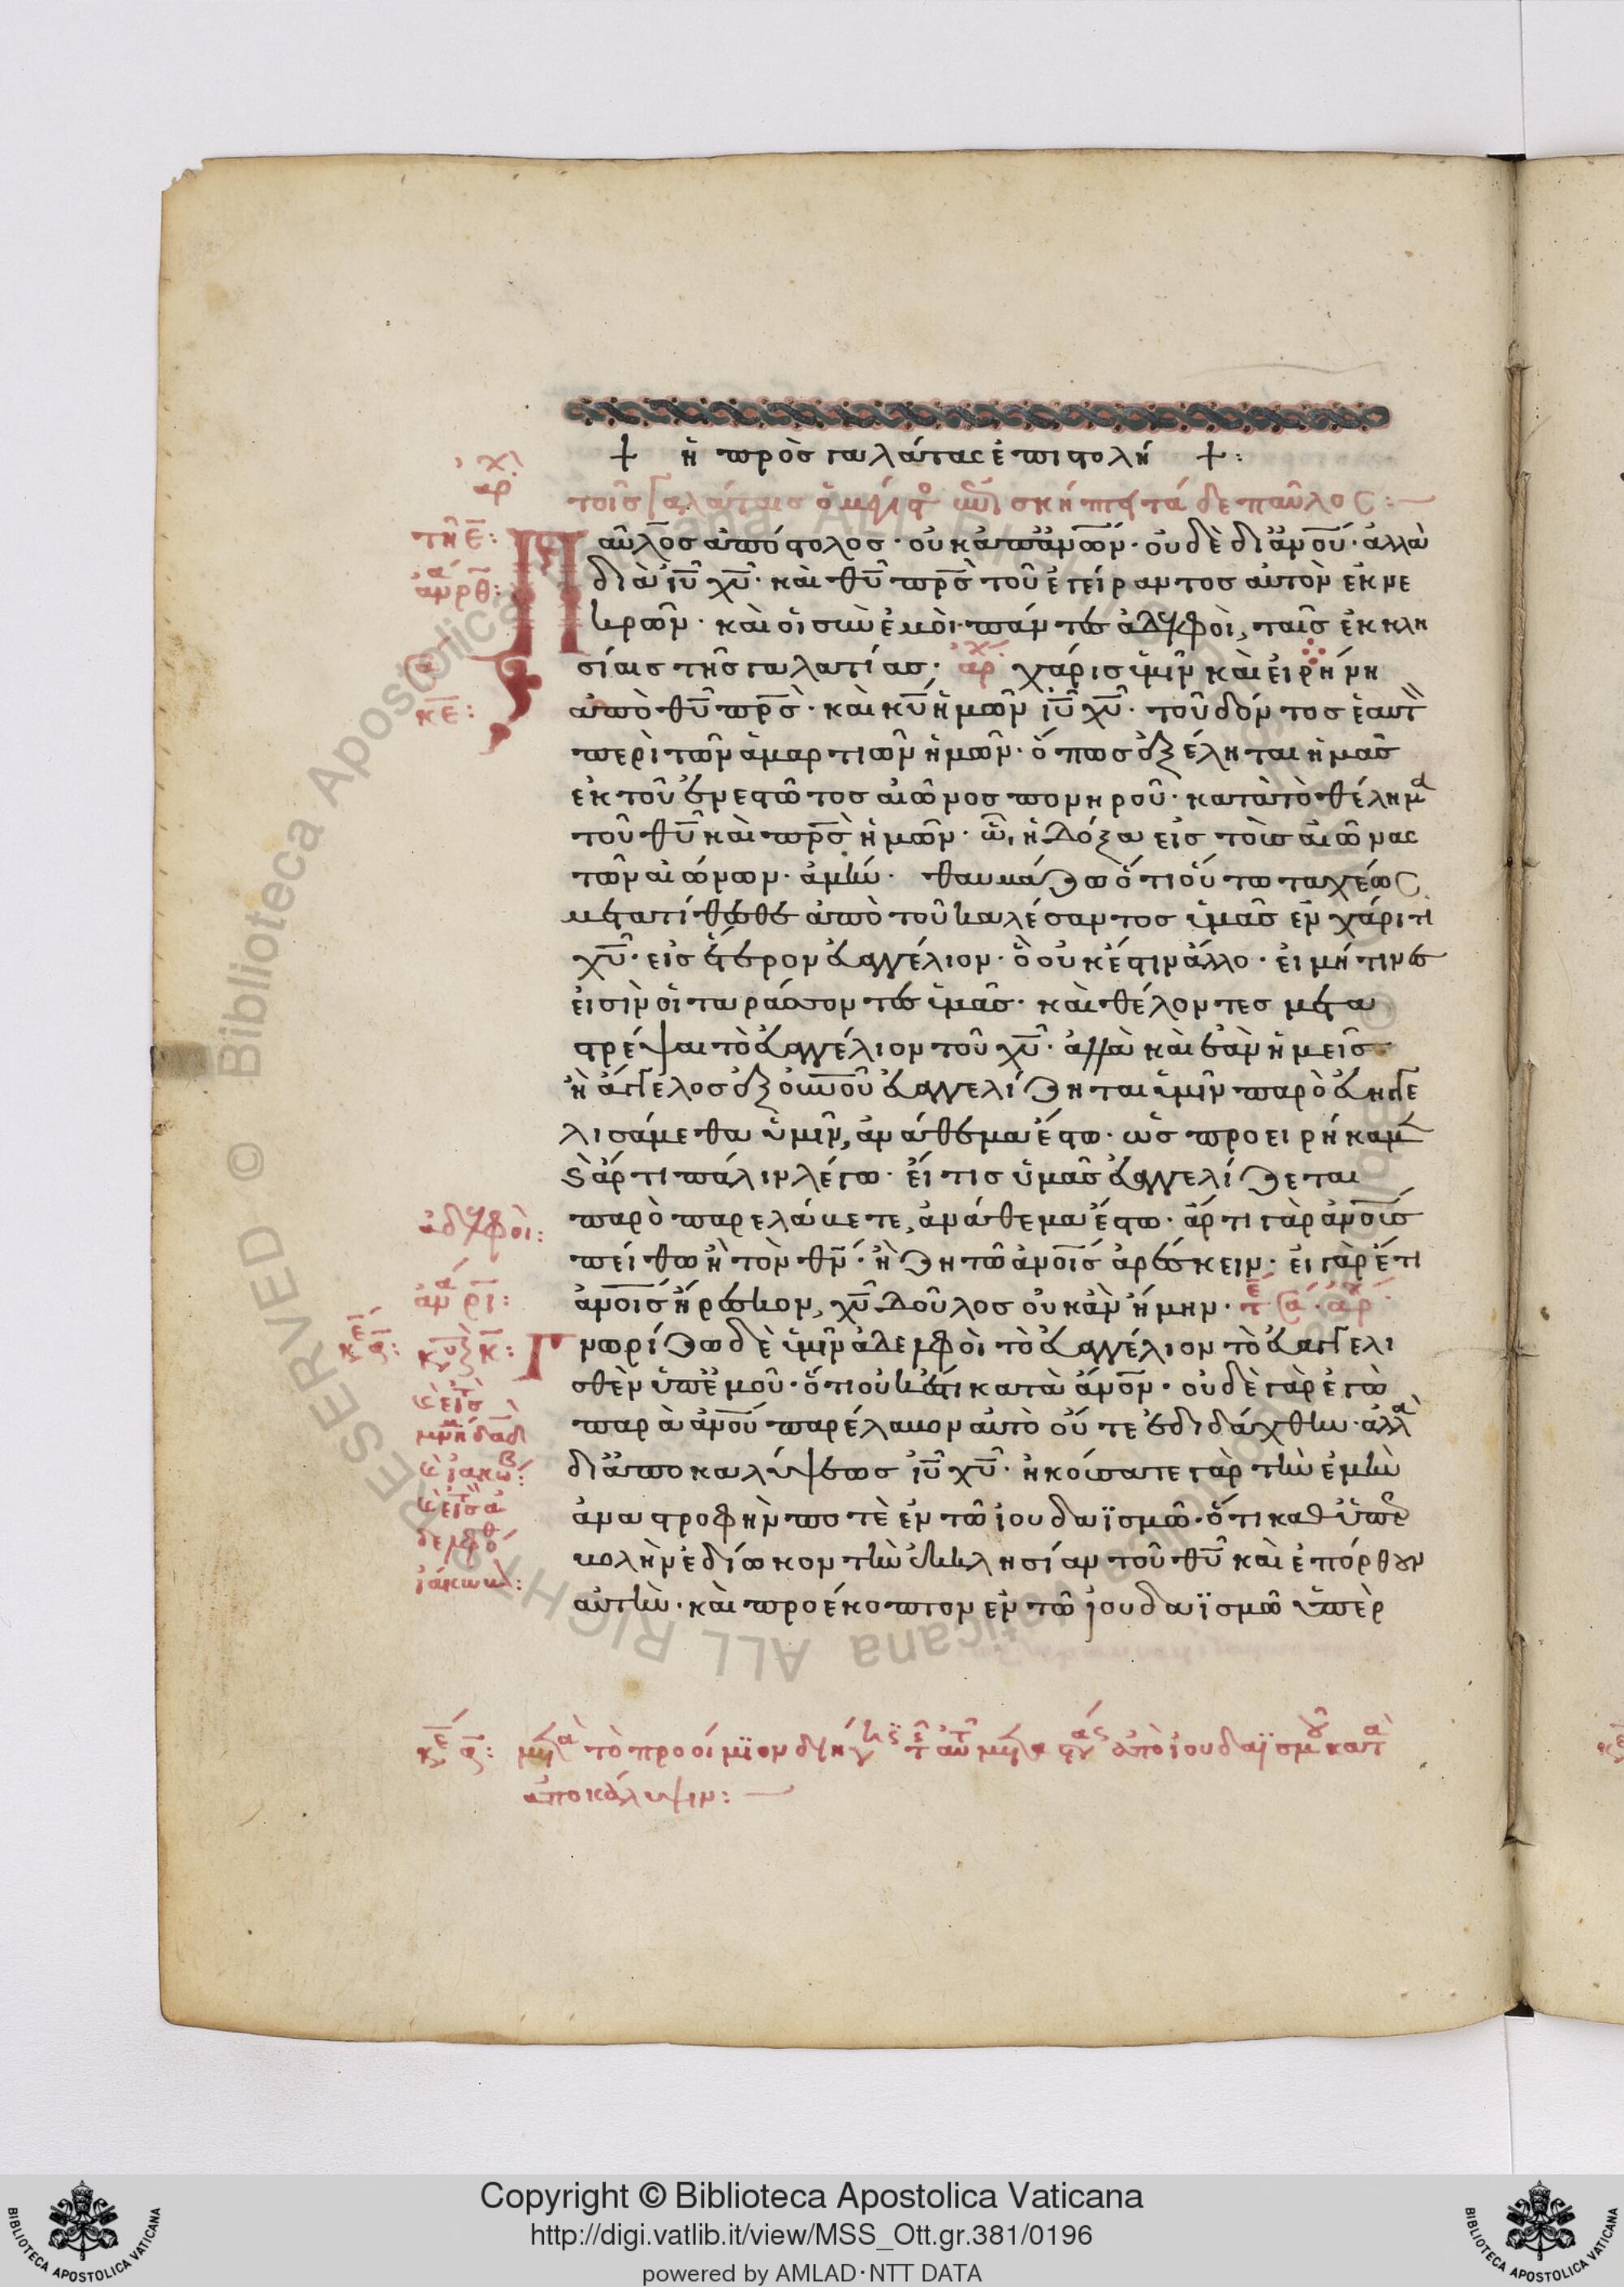 + ἡ πρὸς γαλάτας ἐπιστολή +:
ἀρχ
τοῖς Γαλάταις
τάδε παῦλος:
τῇ ε̅:
Παῦλος ἀπόστολος· οὐκ ἀπ' ἀν̅ω̅ν· οὐδὲ δι' ἀν̅ο̅υ· ἀλλὰ
διὰ ἰυ̅ χυ̅· καὶ θυ̅ πρ̅ς τοῦ ἐγείραντος αὐτὸν ἐκ νε
κρῶν· καὶ οἱ σὺν ἐμοὶ πάντες ἀδελφοὶ, ταῖς ἐκκλη
σίαις τῆς γαλατίας· ἀρχ χάρις ὑμῖν καὶ εἰρήνη
κ̅ε̅:
ἀπὸ θυ̅ πρ̅ς· καὶ κυ̅ ἡμῶν ἰυ̅ χυ̅· τοῦ δόντος ἑαυτ
περὶ τῶν ἁμαρτιῶν ἡμῶν· ὅπως ἐξέληται ἡμᾶς
ἐκ τοῦ ἐνεστῶτος αἰῶνος πονηροῦ· κατὰ τὸ θέλημα
τοῦ θυ̅ καὶ πρ̅ς ἡμῶν· ᾧ, ἡ δόξα εἰς τοὺς αἰῶνας
τῶν αἰώνων· ἀμήν· θαυμάζω ὅτι οὕτω ταχέως
μετατίθεσθε ἀπὸ τοῦ καλέσαντος ὑμᾶς ἐν χάριτι
χυ̅· εἰς ἕτερον εὐαγγέλιον· ὃ οὐκ ἔστιν ἄλλο· εἰ μή τινες
εἰσὶν οἱ ταράσσοντες ὑμᾶς· καὶ θέλοντες μετα
στρέψαι τὸ εὐαγγέλιον τοῦ χυ̅· ἀλλὰ καὶ ἐὰν ἡμεῖς
ἢ ἄγγελος ἐξ οὐ̅νοῦ εὐαγγελίζηται ὑμῖν παρ' ὃ εὐηγγε
λισάμεθα ὑμῖν, ἀνάθεμα ἔστω· ὡς προειρήκαμεν
καὶ ἄρτι πάλιν λέγω· εἴ τις ὑμᾶς εὐαγγελίζεται
ἀδελφοὶ:
παρ' ὃ παρελάβετε, ἀνάθεμα ἔστω· ἄρτι γὰρ ἀν̅ο̅υς
πείθω ἢ τὸν θν̅· ἢ ζητῶ ἀν̅ο̅ις ἀρέσκειν· εἰ γὰρ ἔτι
ἀν̅ο̅ις ἤρεσκον, χυ̅ δοῦλος οὐκ ἂν ἤμην·
Γνωρίζω δὲ ὑμῖν ἀδελφοὶ τὸ εὐαγγέλιον τὸ εὐαγγελι
σθὲν ὑπ' ἐμοῦ· ὅτι οὐκ ἔστι κατὰ ἄν̅ο̅ν· οὐδὲ γὰρ ἐγὼ
παρὰ ἀν̅ο̅υ παρέλαβον αὐτὸ οὔτε ἐδιδάχθην· ἀλλὰ
δι' ἀποκαλύψεως ἰυ̅ χυ̅· ἠκούσατε γὰρ τὴν ἐμὴν
ἀναστροφήν ποτὲ ἐν τῷ ἰουδαϊσμῷ· ὅτι καθ' ὑπερ
βολὴν ἐδίωκον τὴν ἐκκλησίαν τοῦ θυ̅ καὶ ἐπόρθουν
αὐτήν· καὶ προέκοπτον ἐν τῷ ἰουδαϊσμῷ ὑπὲρ
τὸ προοίμϊον ἀπὸ ἰουδαϊσμοῦ κατὰ
ἀποκάλυψιν:
Copyright © Biblioteca Apostolica Vaticana
http://digi.vatlib.it/view/MSS_Ott.gr.381/0196
powered by AMLAD·NTT DATA
BIBLIOTECA APOSTOLICA VATICANA
BIBLIOTECA APOSTOLICA VATICANA